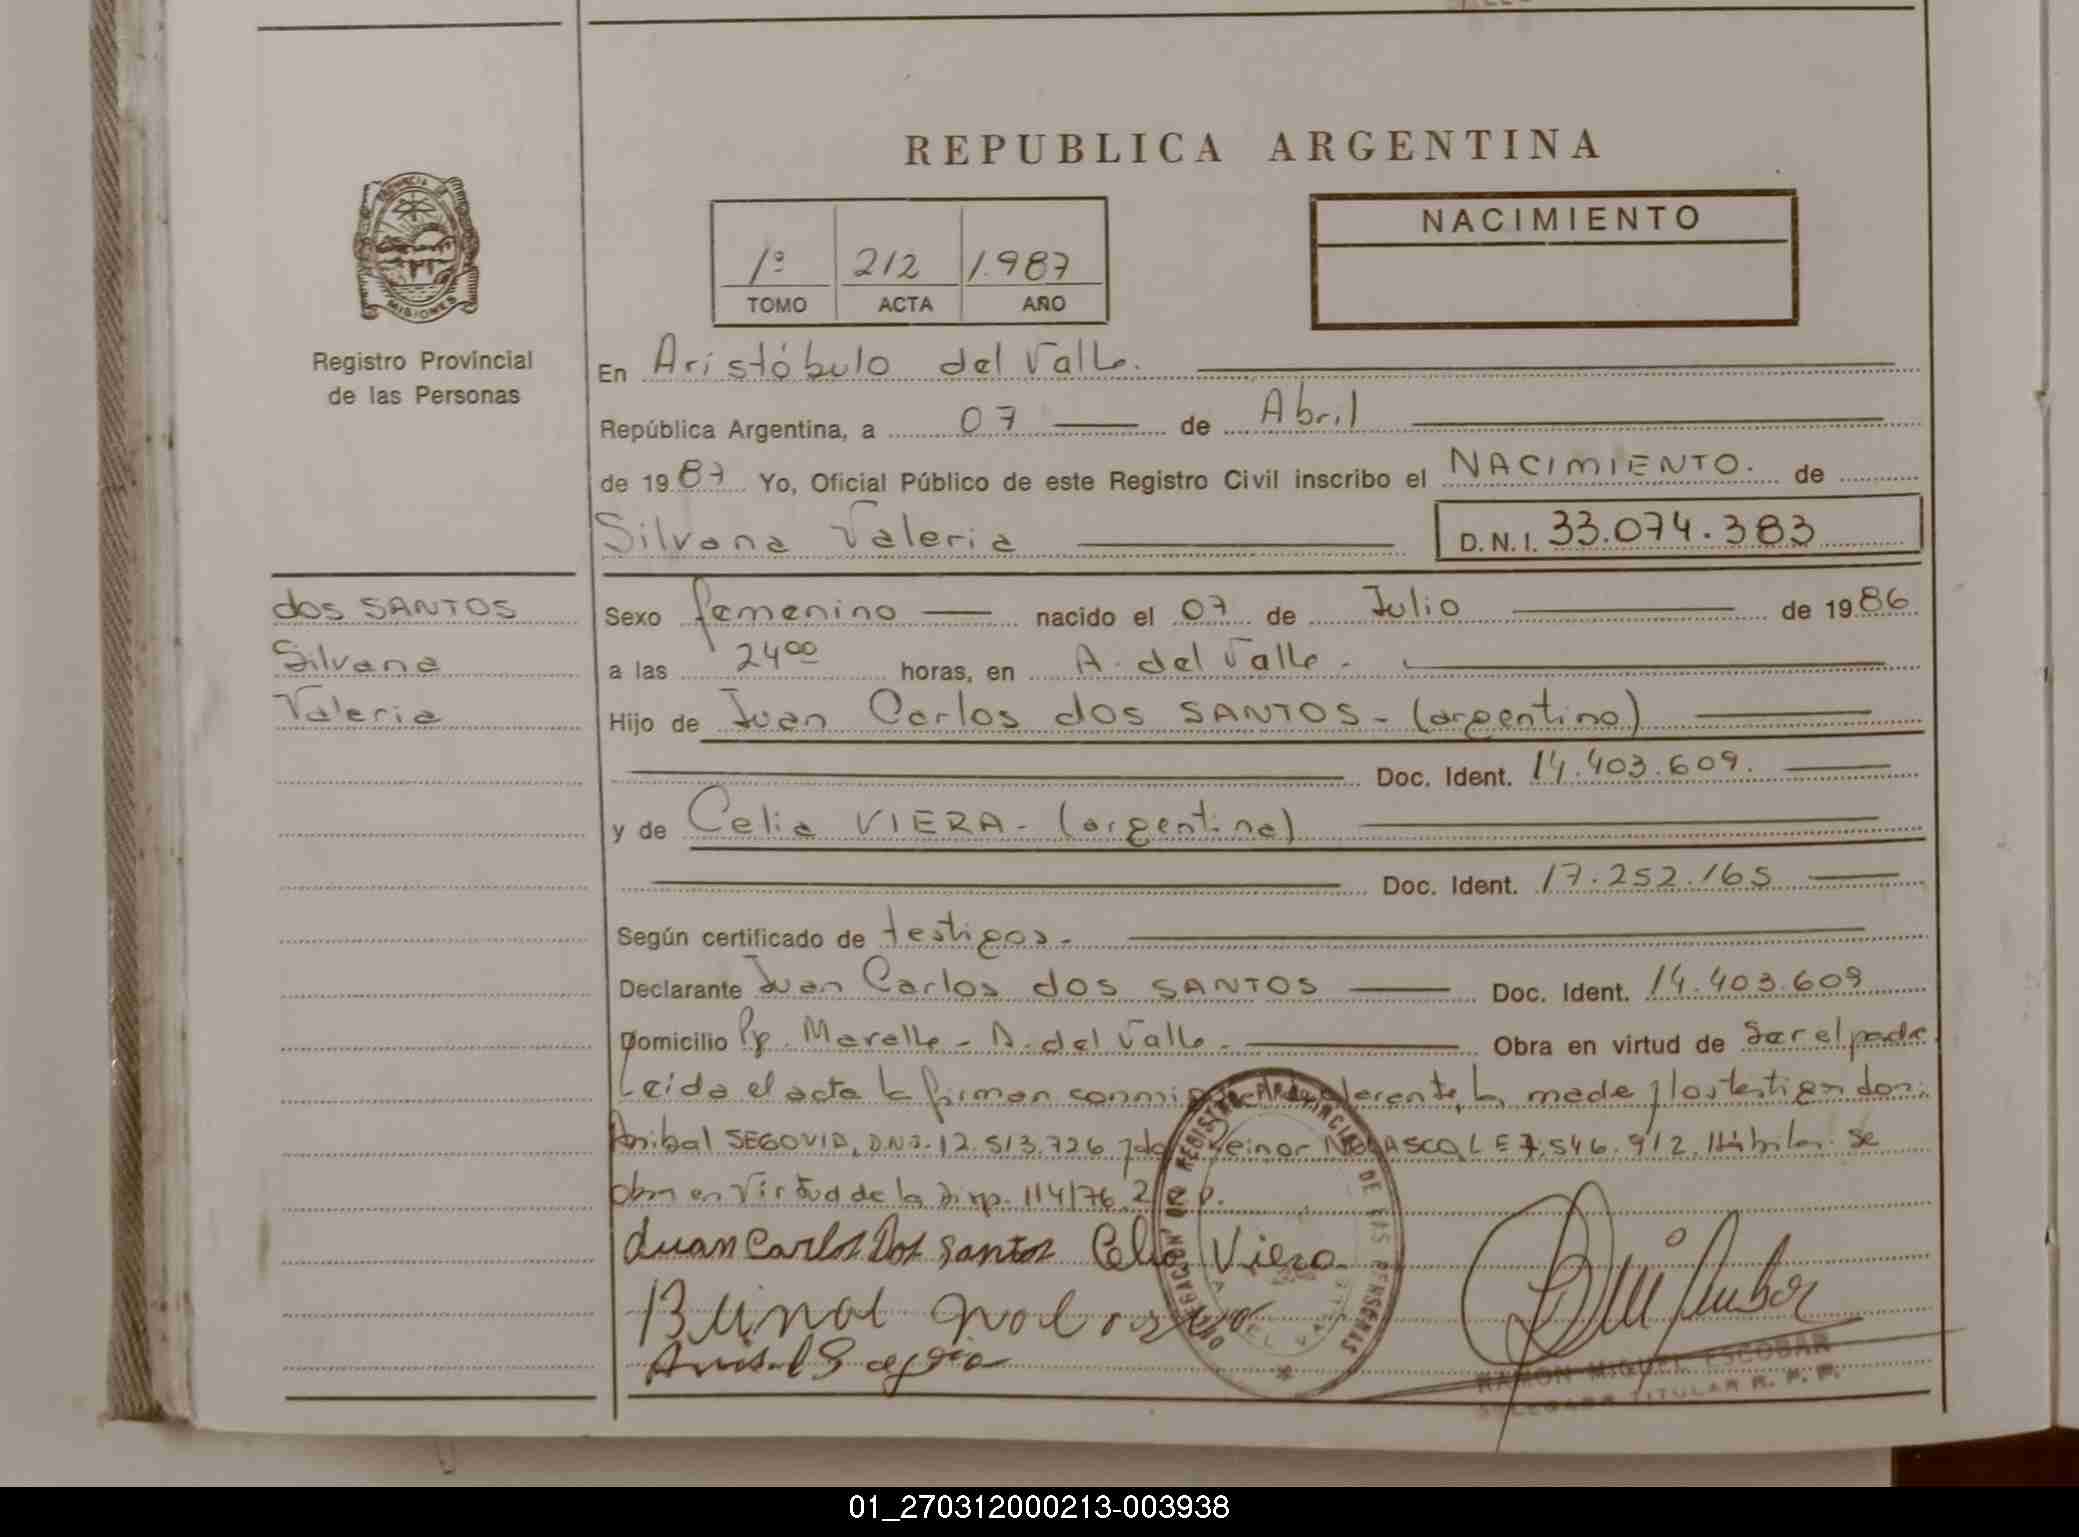 REPUBLICA ARGENTINA
PROVINCIA DE
MISIONES
Registro Provincial
de las Personas
1º 212 1.987
TOMO ACTA AÑO
NACIMIENTO
En Aristóbulo del Valle.
República Argentina, a 07 de Abril
de 1987 Yo, Oficial Público de este Registro Civil inscribo el NACIMIENTO. de
Silvana Valeria D.N.I. 33.074.383
dos SANTOS
Silvana
Valeria
Sexo femenino nacido el 07 de Julio de 1986
a las 24 00 horas, en A. del Valle.
Hijo de Juan Carlos dos SANTOS - (argentino)
Doc. Ident. 14.403.609.
y de Celia VIERA - (argentina)
Doc. Ident. 17.252.165
Según certificado de testigos.
Declarante Juan Carlos dos SANTOS Doc. Ident. 14.403.609
Domicilio Pje. Marelle - A. del Valle. Obra en virtud de ser el padre.
Leida el acta la firman conmigo el declarante, la madre y los testigos don:
Anibal SEGOVIA, D.N.I. 12.513.726 y don Reinor NOLASCO, L E 7.546.912. Hábiles. se
obra en virtud de la Disp. 114/76, 2º p.
Juan Carlos Dos Santos Celia Viera
DELEGACION DE REGISTRO PROVINCIAL DE LAS PERSONAS
A. DEL VALLE
RAMON MIGUEL ESCOBAR
DELEGADO TITULAR R. P. P.
01_270312000213-003938